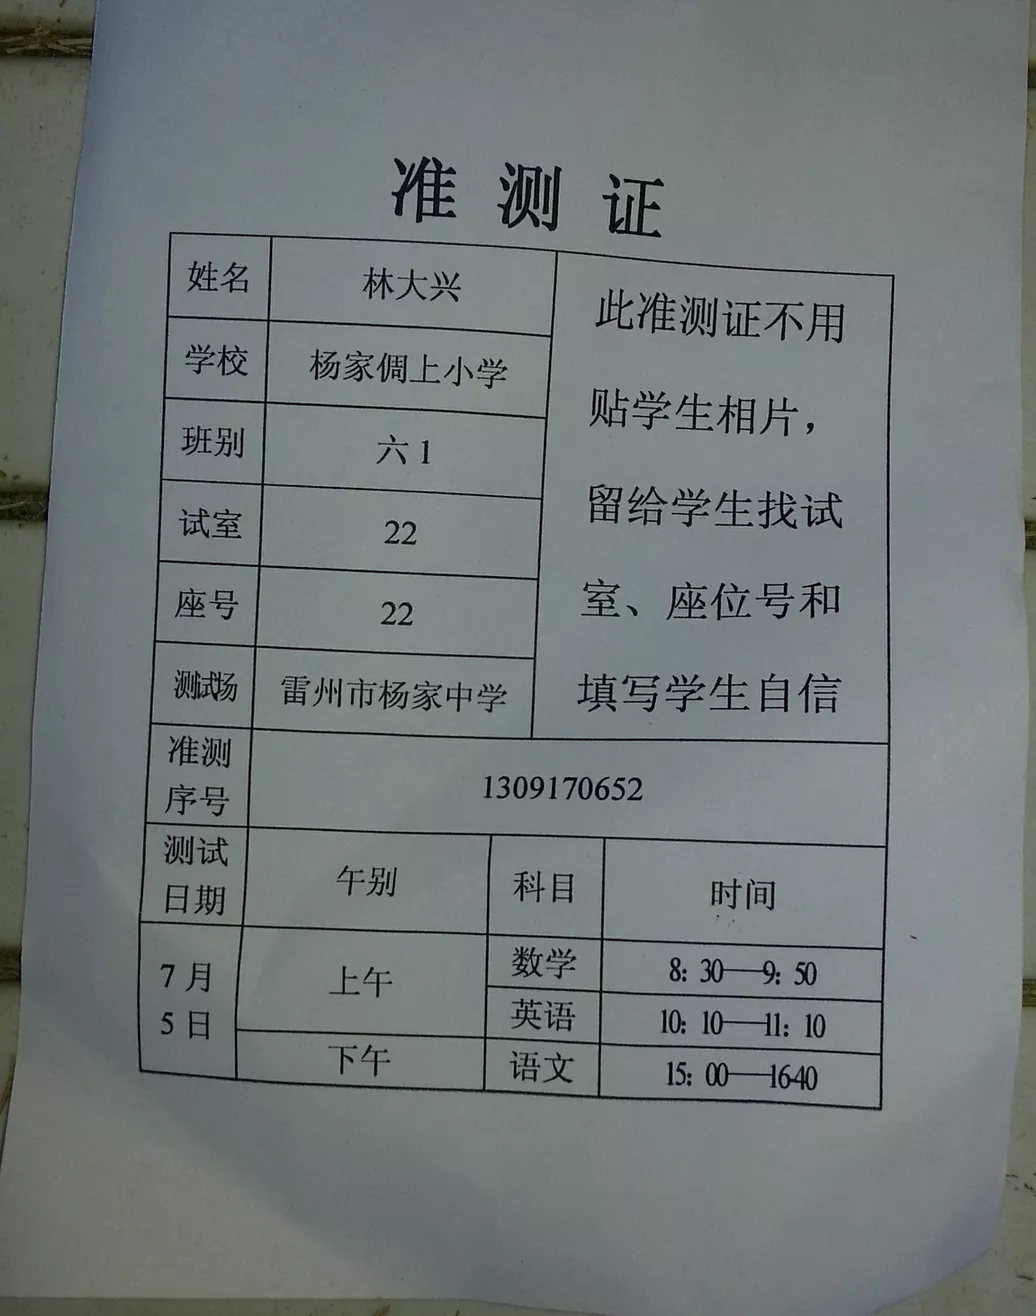 准测证
姓名 林大兴
学校 杨家倜上小学
班别 六1
试室 22
座号 22
测试场 雷州市杨家中学
此准测证不用
贴学生相片，
留给学生找试
室、座位号和
填写学生自信
准测
序号
1309170652
测试
日期
午别 科目 时间
7月
5日
上午
数学 8：30—9：50
英语 10：10—11：10
下午 语文 15：00—1640